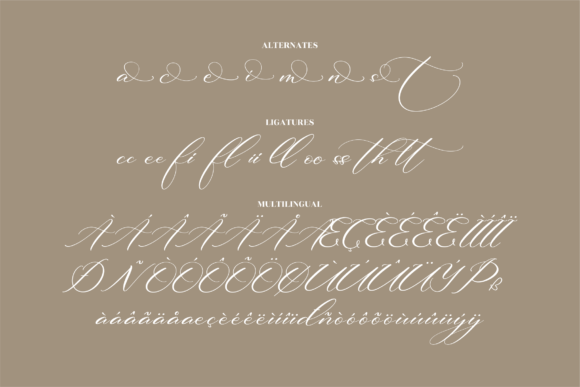 ALTERNATES
a c e i m n s t
LIGATURES
cc ee fi fl ii ll oo ss th tt
MULTILINGUAL
À Á Â Ã Ä Å Æ Ç È É Ê Ë Ì Í Î Ï
Ø Ñ Ò Ó Ô Õ Ö Ø Ù Ú Û Ü Ý Þ ß
à á â ã ä å æ ç è é ê ë ì í î ï ð ñ ò ó ô õ ö ù ú û ü ý ÿ